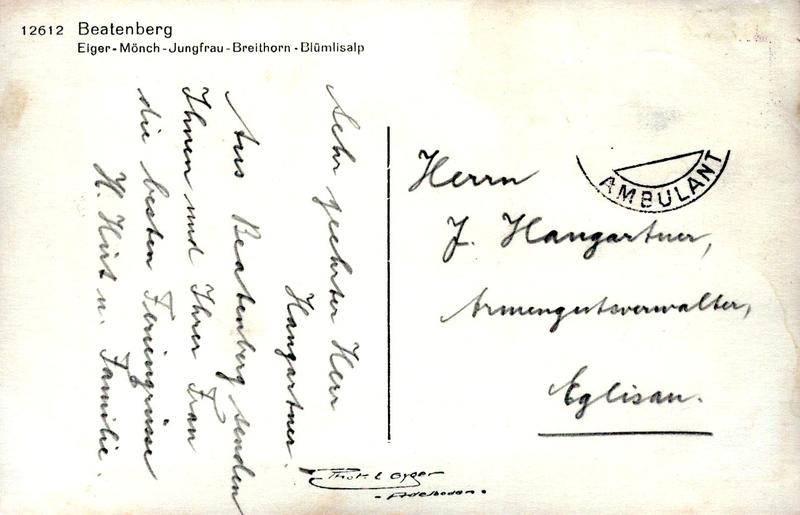 12612 Beatenberg
Eiger - Mönch - Jungfrau - Breithorn - Blümlisalp
Sehr geehrter Herr
Hangartner.
Aus Beatenberg senden
Ihnen und Ihrer Frau
die besten Feriengrüsse
H. Hirt u. Familie.
AMBULANT
Herrn
J. Hangartner,
Armengutsverwalter,
Eglisau.
Phot. E. Gyger
- Adelboden -